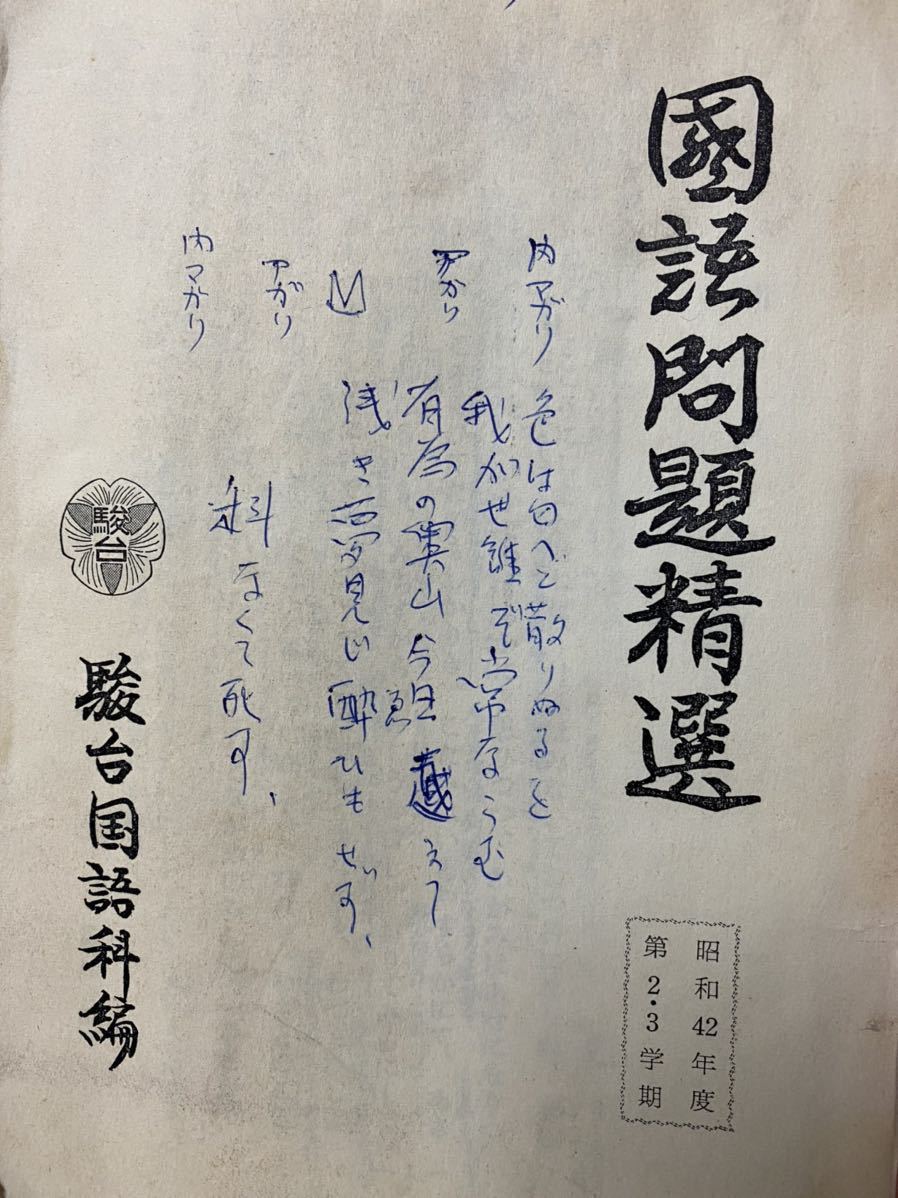 國語問題精選
昭和42年度
第2・3学期
内マガリ
色は匂へど散りぬるを
我が世誰ぞ常ならむ
有為の奥山今日越えて
浅き夢見じ酔ひもせず、
マガリ
内マガリ
科なくて死す、
駿台
駿台国語科編